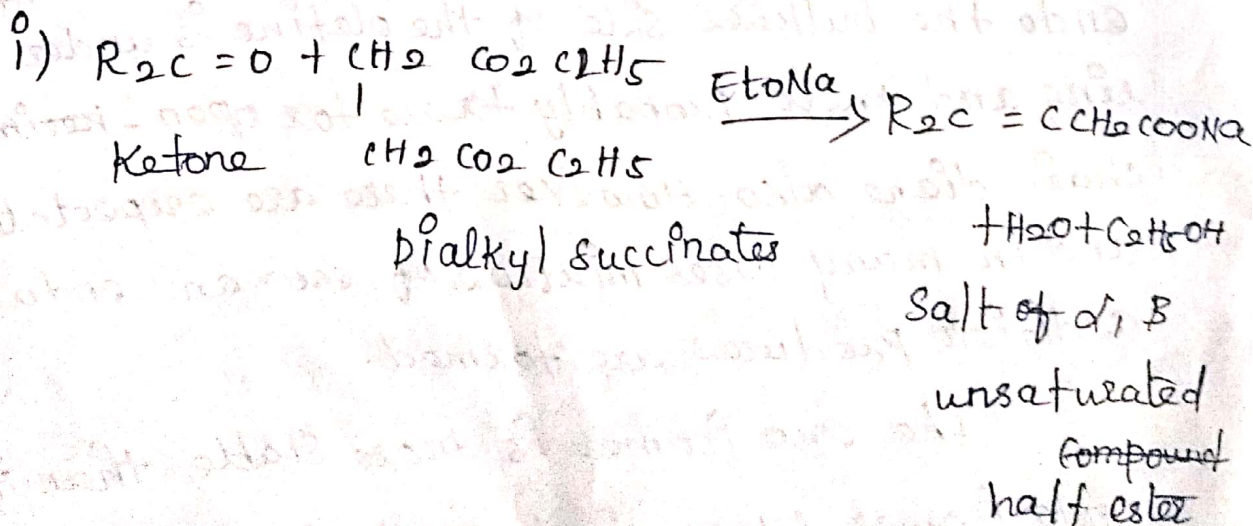 i) R2C = O + CH2 CO2 C2H5 EtoNa → R2C = C CH2 COONa
|
Ketone CH2 CO2 C2H5
+H2O+C2H5OH
Dialkyl succinates
Salt of α, B
unsaturated
Compound
half ester